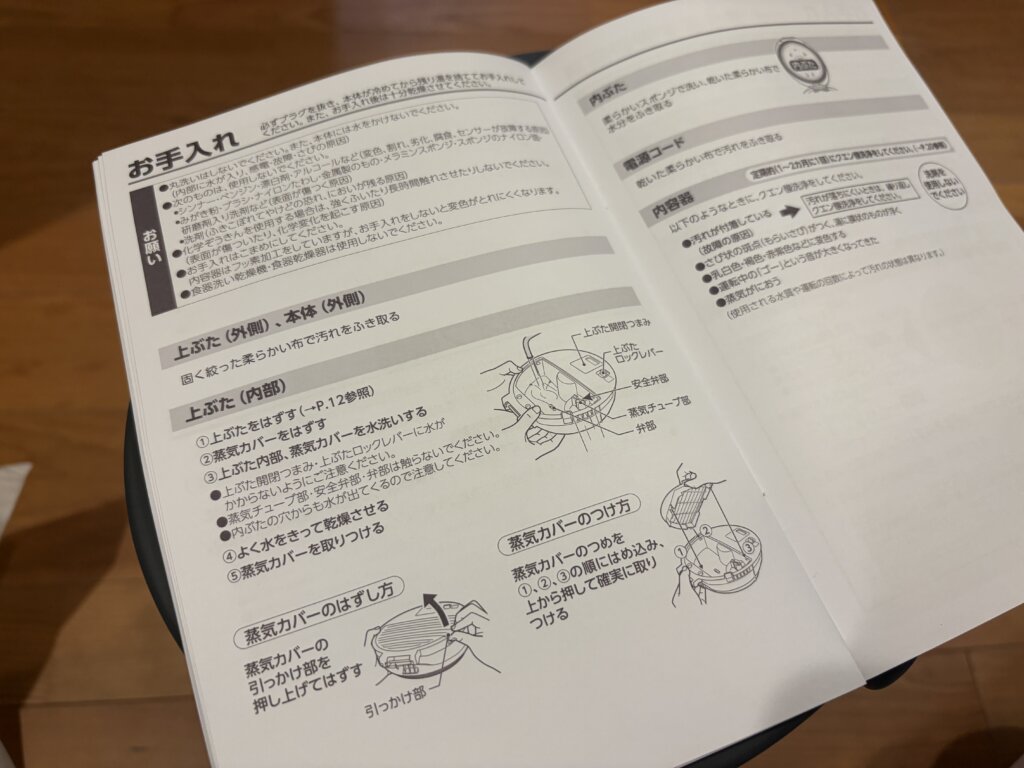 お手入れ
必ずプラグを抜き、本体が冷めてから残り湯を捨ててお手入れして
ください。また、お手入れ後は十分乾燥させてください。
お願い
●丸洗いはしないでください。また、本体には水をかけないでください。
(内部に水が入り、感電・故障・さびの原因)
●次のものは、使用しないでください。
•シンナー・ベンジン・漂白剤・アルコールなど(変色、割れ、劣化、腐食、センサーが故障する原因)
•みがき粉・ブラシ・ナイロンたわし・金属製のもの・メラミンスポンジ・スポンジのナイロン面・
研磨剤入り洗剤など(表面が傷つく原因)
•洗剤(ふきこぼれてやけどの恐れ、においが残る原因)
●化学ぞうきんを使用する場合は、強くふいたり長時間触れさせたりしないでください。
(表面が傷ついたり、化学変化を起こす原因)
●お手入れはこまめにしてください。
内容器はフッ素加工をしていますが、お手入れをしないと変色がとれにくくなります。
●食器洗い乾燥機・食器乾燥器は使用しないでください。
上ぶた(外側)、本体(外側)
固く絞った柔らかい布で汚れをふき取る
上ぶた(内部)
①上ぶたをはずす(→P.12参照)
②蒸気カバーをはずす
③上ぶた内部、蒸気カバーを水洗いする
●上ぶた開閉つまみ・上ぶたロックレバーに水が
かからないようにご注意ください。
●蒸気チューブ部・安全弁部・弁部は触らないでください。
●内ぶたの穴からも水が出てくるので注意してください。
④よく水をきって乾燥させる
⑤蒸気カバーを取りつける
上ぶた開閉つまみ
上ぶた
ロックレバー
安全弁部
蒸気チューブ部
弁部
蒸気カバーのはずし方
蒸気カバーの
引っかけ部を
押し上げてはずす
引っかけ部
蒸気カバーのつけ方
蒸気カバーのつめを
①、②、③の順にはめ込み、
上から押して確実に取り
つける
①
②
③
内ぶた
柔らかいスポンジで洗い、乾いた柔らかい布で
水分をふき取る
内ぶた
電源コード
乾いた柔らかい布で汚れをふき取る
内容器
定期的(1〜2カ月に1回)にクエン酸洗浄をしてください。(→P.20参照)
以下のようなときに、クエン酸洗浄をしてください。
●汚れが付着している
(故障の原因)
汚れが落ちにくいときは、繰り返し
クエン酸洗浄をしてください。
洗剤を
使用しない
でください
●さび状の斑点(もらいさび)がつく、湯に膜状のものが浮く
●乳白色・褐色・赤紫色などに変色する
●運転中の「ゴー」という音が大きくなってきた
●蒸気がにおう
(使用される水質や運転の回数によって汚れの状態は異なります。)